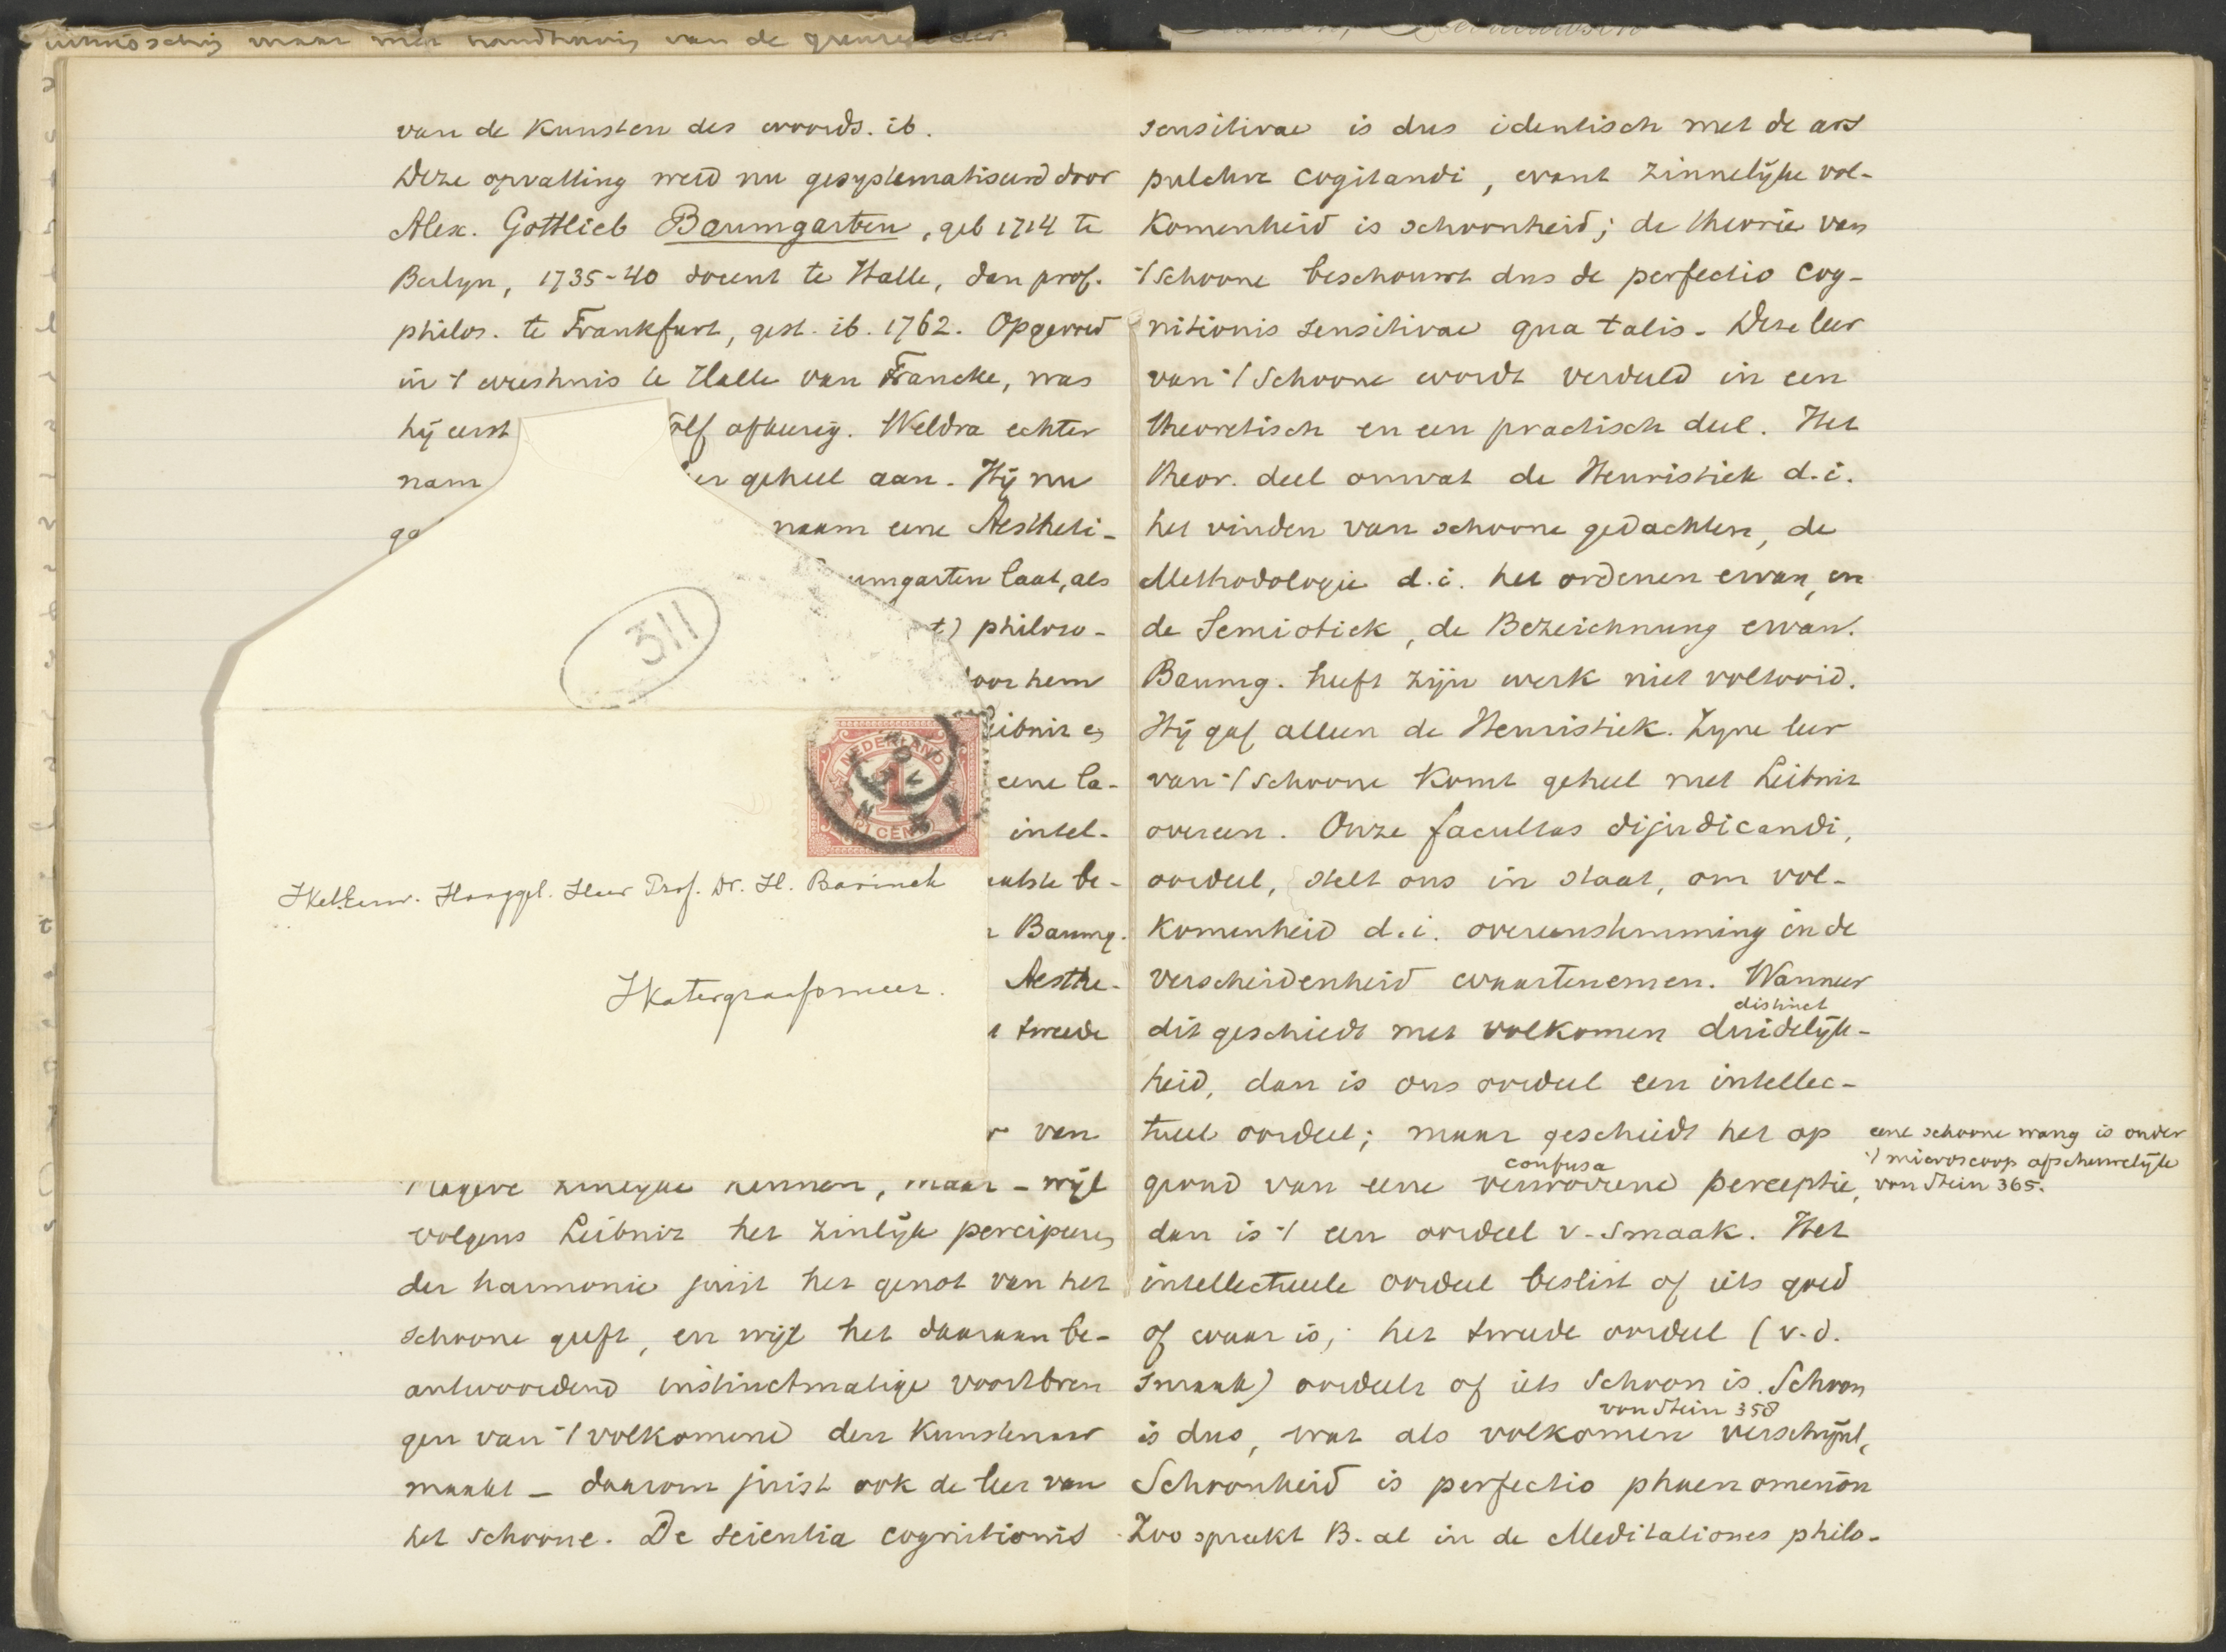 van de Kunsten des woords. ib.
Deze opvatting werd nu gesystematiseerd door
Alex. Gottlieb Baumgarten, geb 1714 te
Berlyn, 1735-40 docent te Halle, dan prof.
philos. te Frankfurt, gest. ib. 1762. Opgevoed
in 't weeshuis te Halle van Francke, was
hij eerst
afkeerig. Weldra echter
nam
geheel aan. Hij nu
naam eene Aestheti-
umgarten laat, als
t) philoso-
oor hem
eibniz en
eene la-
intel-
aatste be-
Baumg.
Aesthe-
tweede
van
kennen, maar - wijl
volgens Leibniz het zinlijk percipieren
der harmonie juist het genot van het
schoone geeft, en wijl het daaraan be-
antwoordend instinctmatige voortbren
gen van 't volkomene den Kunstenaar
maakt - daarom juist ook de leer van
het schoone. De scientia cognitionis
311
NEDERLAND
1
CENT
WelEerw. Hooggel. Heer Prof. Dr. H. Bavinck
Watergraafsmeer.
sensitivae is dus identisch met de ars
pulchre cogitandi, want zinnelijke vol-
Komenheid is schoonheid; de theorie van
't Schoone beschouwt dus de perfectio cog-
nitionis sensitivae qua talis. Deze leer
van 't Schoone wordt verdeeld in een
theoretisch en een practisch deel. Het
theor. deel omvat de Heuristiek d.i.
het vinden van schoone gedachten, de
Methodologie d.i. het ordenen ervan, en
de Semiotiek, de Bezeichnung ervan.
Baumg. heeft zijn werk niet voltooid.
Hij gaf alleen de Heuristiek. Zyne leer
van 't schoone Komt geheel met Leibniz
overeen. Onze facultas dijudicandi,
oordeel, stelt ons in staat, om vol-
Komenheid d.i. overeenstemming in de
verscheidenheid waartenemen. Wanneer
distinct
dit geschiedt met volkomen duidelijk-
heid, dan is ons oordeel een intellec-
tueel oordeel; maar geschiedt het op
confusa
grond van eene verwarrende perceptie,
dan is 't een oordeel v. smaak. Het
intellectueele oordeel beslist of iets goed
of waar is; het tweede oordeel (v.d.
smaak) oordeelt of iets Schoon is. Schoon
von Stein 358
is dus, wat als volkomen verschijnt,
Schoonheid is perfectio phaenomenon
Zoo spreekt B. al in de Meditationes philo-
eene schoone wang is onder
't microscoop afschuwelijk
von Stein 365.